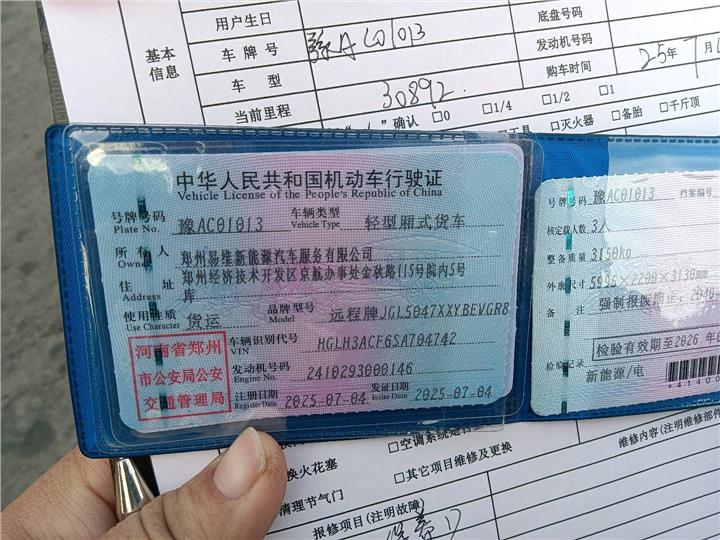 用户生日
底盘号码
基本
信息
车牌号
豫AC01013
发动机号码
车 型
购车时间
25年7月
当前里程
30892
确认 □0 □1/4 □1/2 □1
工具 □灭火器 □备胎 □千斤顶
中华人民共和国机动车行驶证
Vehicle License of the People's Republic of China
号牌号码
Plate No.
豫AC01013
车辆类型
Vehicle Type
轻型厢式货车
所有人
Owner
郑州易维新能源汽车服务有限公司
住址
Address
郑州经济技术开发区京航办事处金秋路115号院内5号
库
使用性质
Use Character
货运
品牌型号
Model
远程牌JGL5047XXYBEVGR8
车辆识别代号
VIN
HGLH3ACF6SA704742
发动机号码
Engine No.
2410293000146
注册日期
Register Date
2025-07-04
发证日期
Issue Date
2025-07-04
河南省郑州
市公安局公安
交通管理局
号牌号码 豫AC01013 档案编号
核定载人数 3人
整备质量 3150kg
外廓尺寸 5995×2200×3130mm
备注 强制报废期止:2040
检验有效期至2026年
检验记录
新能源/电
*41400
□空调系统
维修内容(注明维修部件
换火花塞
□其它项目维修及更换
清理节气门
报修项目(注明故障)